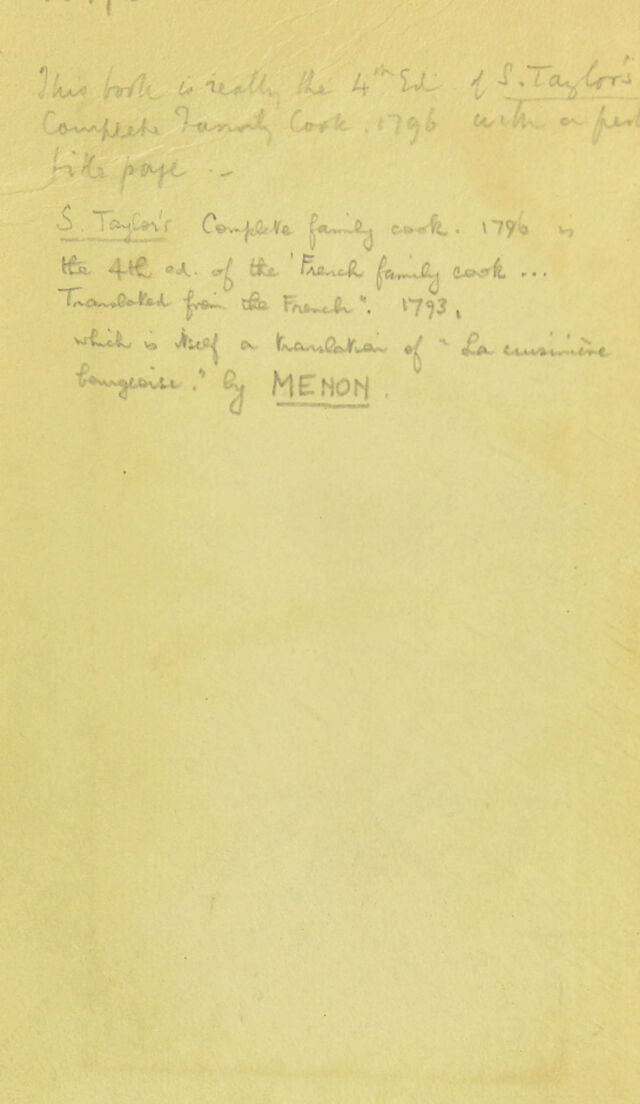 This book is really the 4th Ed of S. Taylor's
Complete Family Cook. 1796 with a
title page. -
S. Taylor's Complete family cook. 1796 is
the 4th ed. of the 'French family cook ...
Translated from the French". 1793,
which is itself a translation of "La cuisinière
bourgeoise." by MENON.